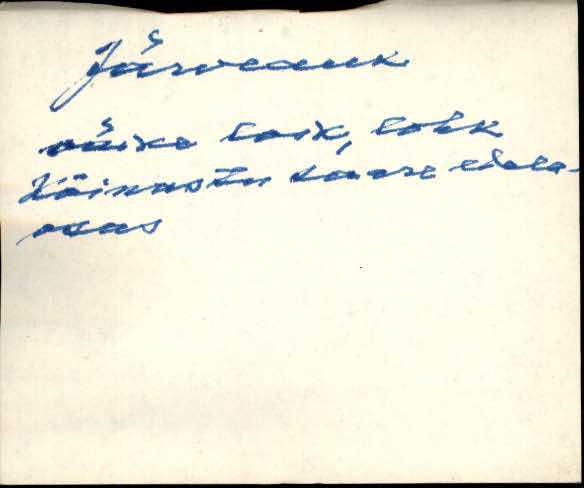 Järveauk
väike loik, lohk
Kõinastu saare edela-
osas